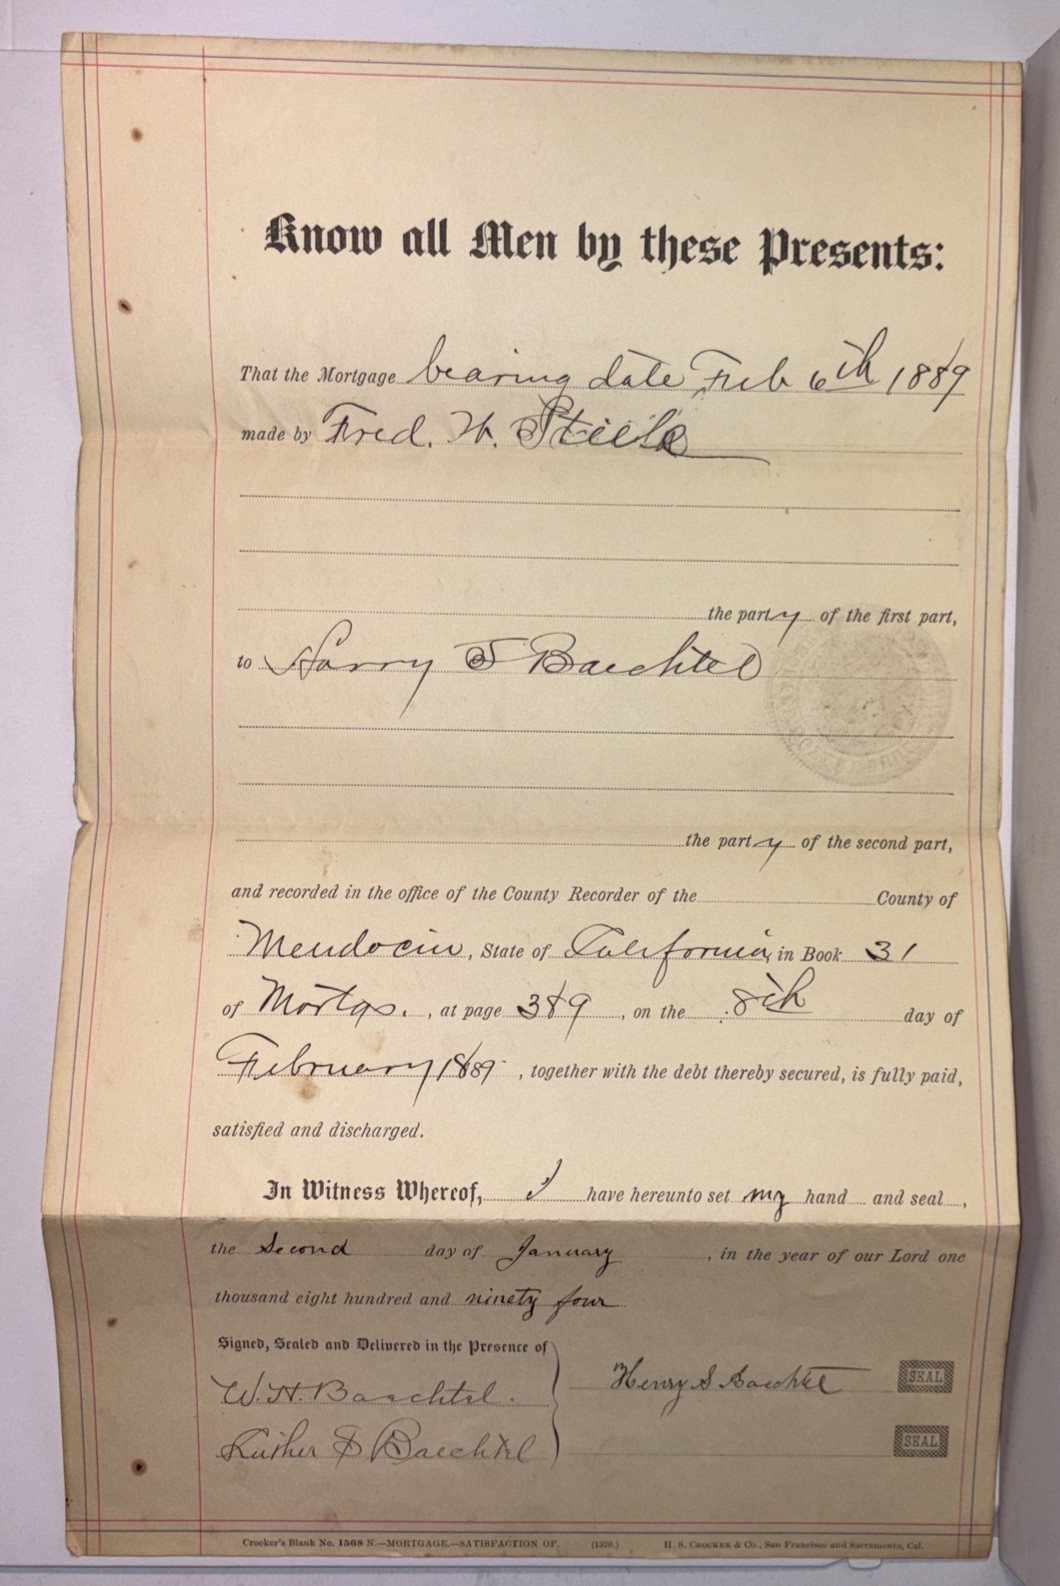 Know all Men by these Presents:
That the Mortgage bearing date Feb 6th 1889
made by Fred. W. Steele
the party of the first part,
to Harry S Baechtel
the party of the second part,
and recorded in the office of the County Recorder of the County of
Mendocin, State of California, in Book 31
of Mortgs. , at page 389 , on the 8th day of
February 1889 , together with the debt thereby secured, is fully paid,
satisfied and discharged.
In Witness Whereof, I have hereunto set my hand and seal ,
the Second day of January , in the year of our Lord one
thousand eight hundred and ninety four
Signed, Sealed and Delivered in the Presence of
W. H. Baechtel. Henry S Baechtel SEAL
Luther S Baechtel SEAL
Crocker's Blank No. 1568 N.—MORTGAGE.—SATISFACTION OF. (1326.) H. S. CROCKER & Co., San Francisco and Sacramento, Cal.